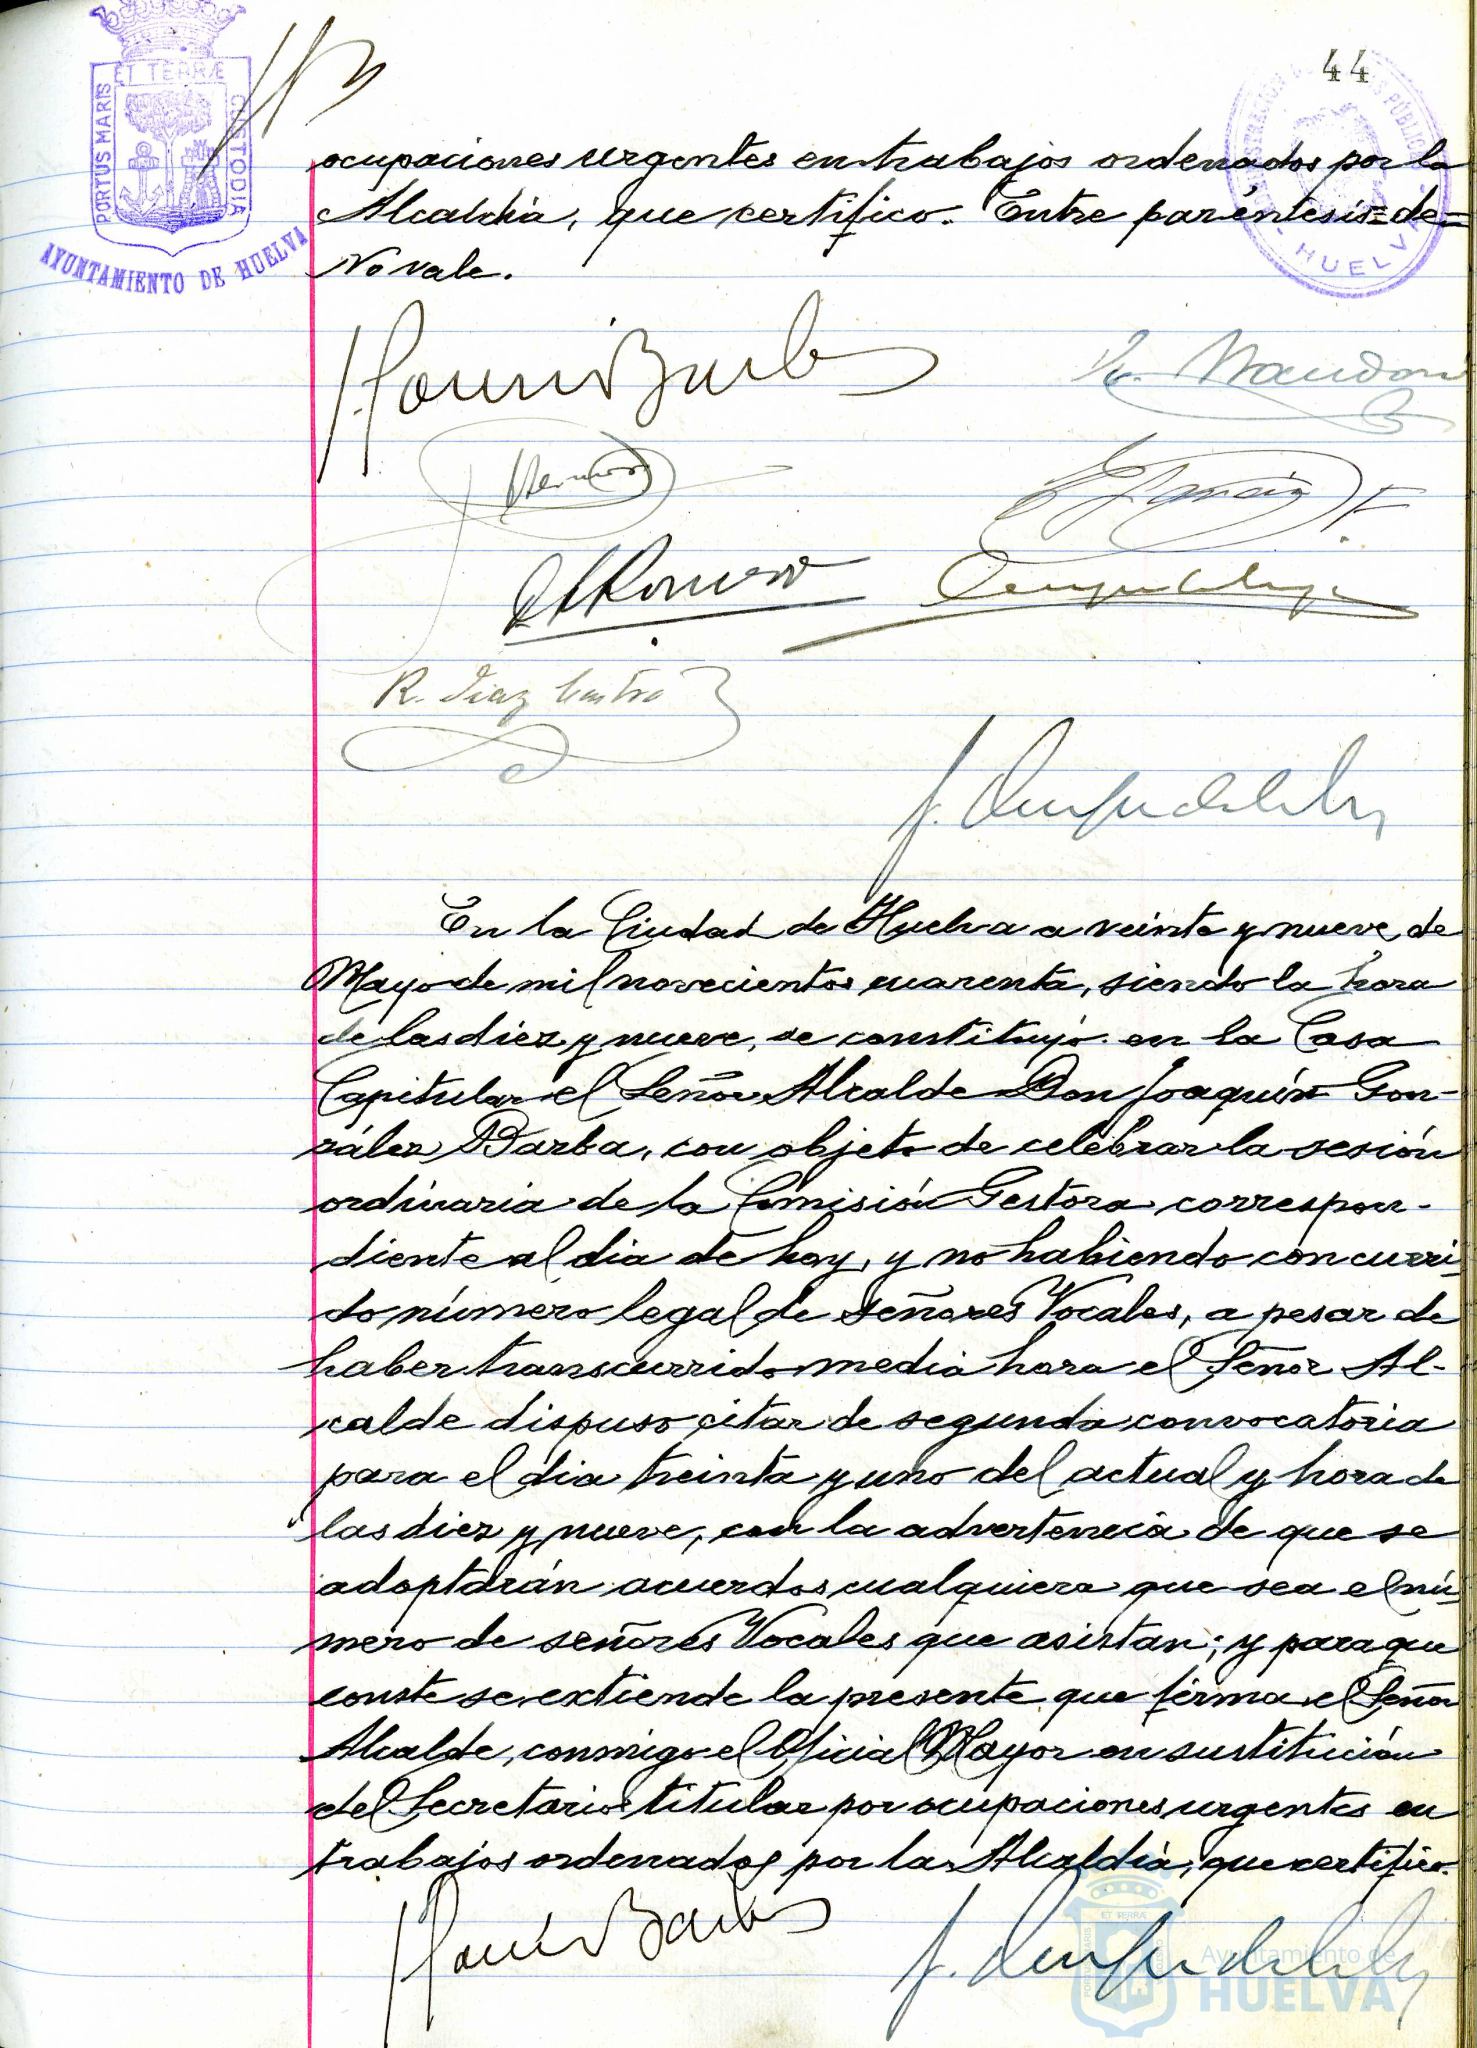 44
ET TERRÆ
PORTUS MARIS
CUSTODIA
AYUNTAMIENTO DE HUELVA
HUELVA
ocupaciones urgentes en trabajos ordenados por la
Alcaldia, que certifico. Entre parentesis=de=
No vale.
R. Diaz Castro
En la Ciudad de Huelva a veinte y nueve de
Mayo de mil novecientos cuarenta, siendo la hora
de las diez y nueve, se constituyó en la Casa
Capitular el Señor Alcalde Don Joaquín Gon-
zález Barba, con objeto de celebrar la sesión
ordinaria de la Comisión Gestora correspon-
diente al dia de hoy, y no habiendo concurri-
do número legal de señores Vocales, a pesar de
haber transcurrido media hora el Señor Al-
calde dispuso citar de segunda convocatoria
para el dia treinta y uno del actual y hora de
las diez y nueve, con la advertencia de que se
adoptarán acuerdos cualquiera que sea el nú-
mero de señores Vocales que asistan; y para que
conste se extiende la presente que firma el Señor
Alcalde, conmigo el Oficial Mayor en sustitución
del Secretario titular por ocupaciones urgentes en
trabajos ordenados por la Alcaldia, que certifico.
ET TERRÆ
Ayuntamiento de
HUELVA